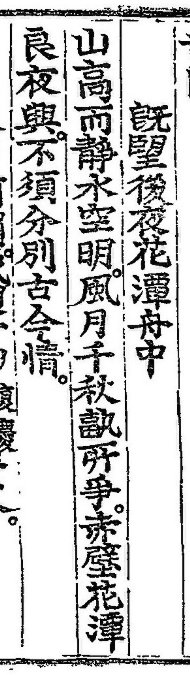 旣望後夜花潭舟中
山高而靜水空明。風月千秋孰所爭。赤壁花潭
良夜興。不須分別古今情。